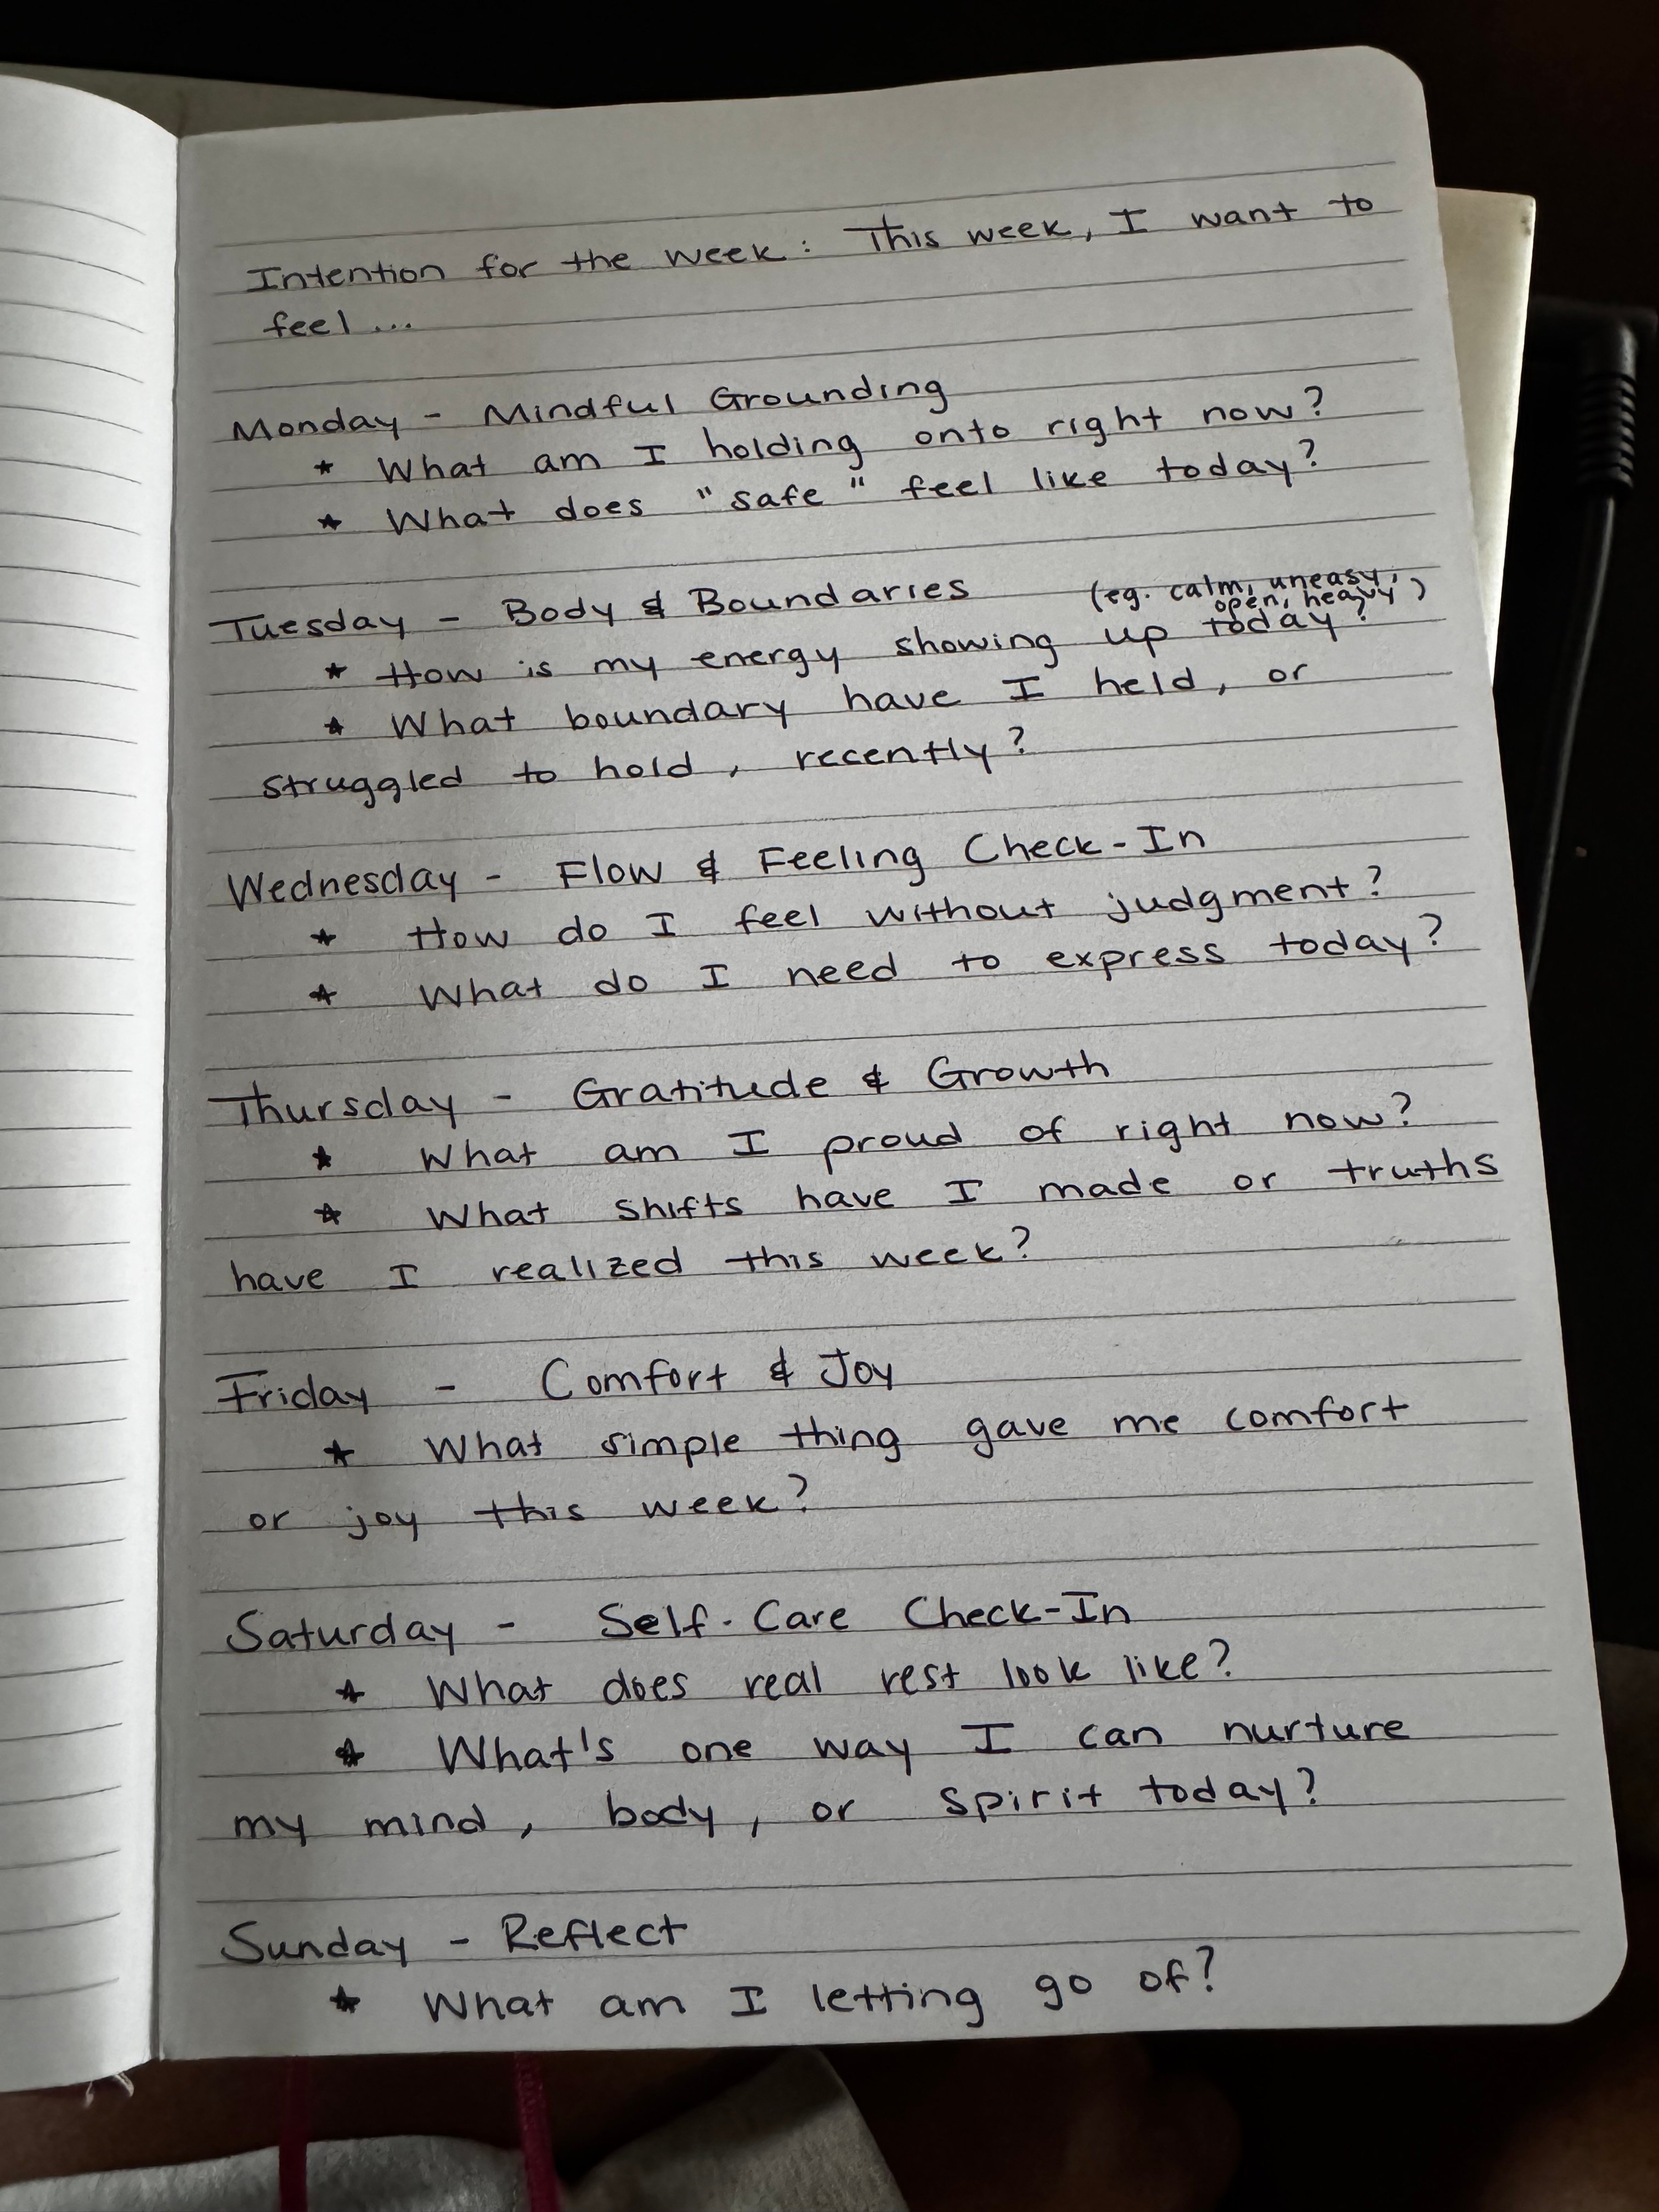 Intention for the week: This week, I want to
feel...
Monday - Mindful Grounding
* What am I holding onto right now?
* What does "safe" feel like today?
Tuesday - Body & Boundaries (eg. calm, uneasy,
open, heavy)
* How is my energy showing up today?
* What boundary have I held, or
struggled to hold, recently?
Wednesday - Flow & Feeling Check-In
* How do I feel without judgment?
* What do I need to express today?
Thursday - Gratitude & Growth
* What am I proud of right now?
* What shifts have I made or truths
have I realized this week?
Friday - Comfort & Joy
* What simple thing gave me comfort
or joy this week?
Saturday - Self-Care Check-In
* What does real rest look like?
* What's one way I can nurture
my mind, body, or spirit today?
Sunday - Reflect
* What am I letting go of?